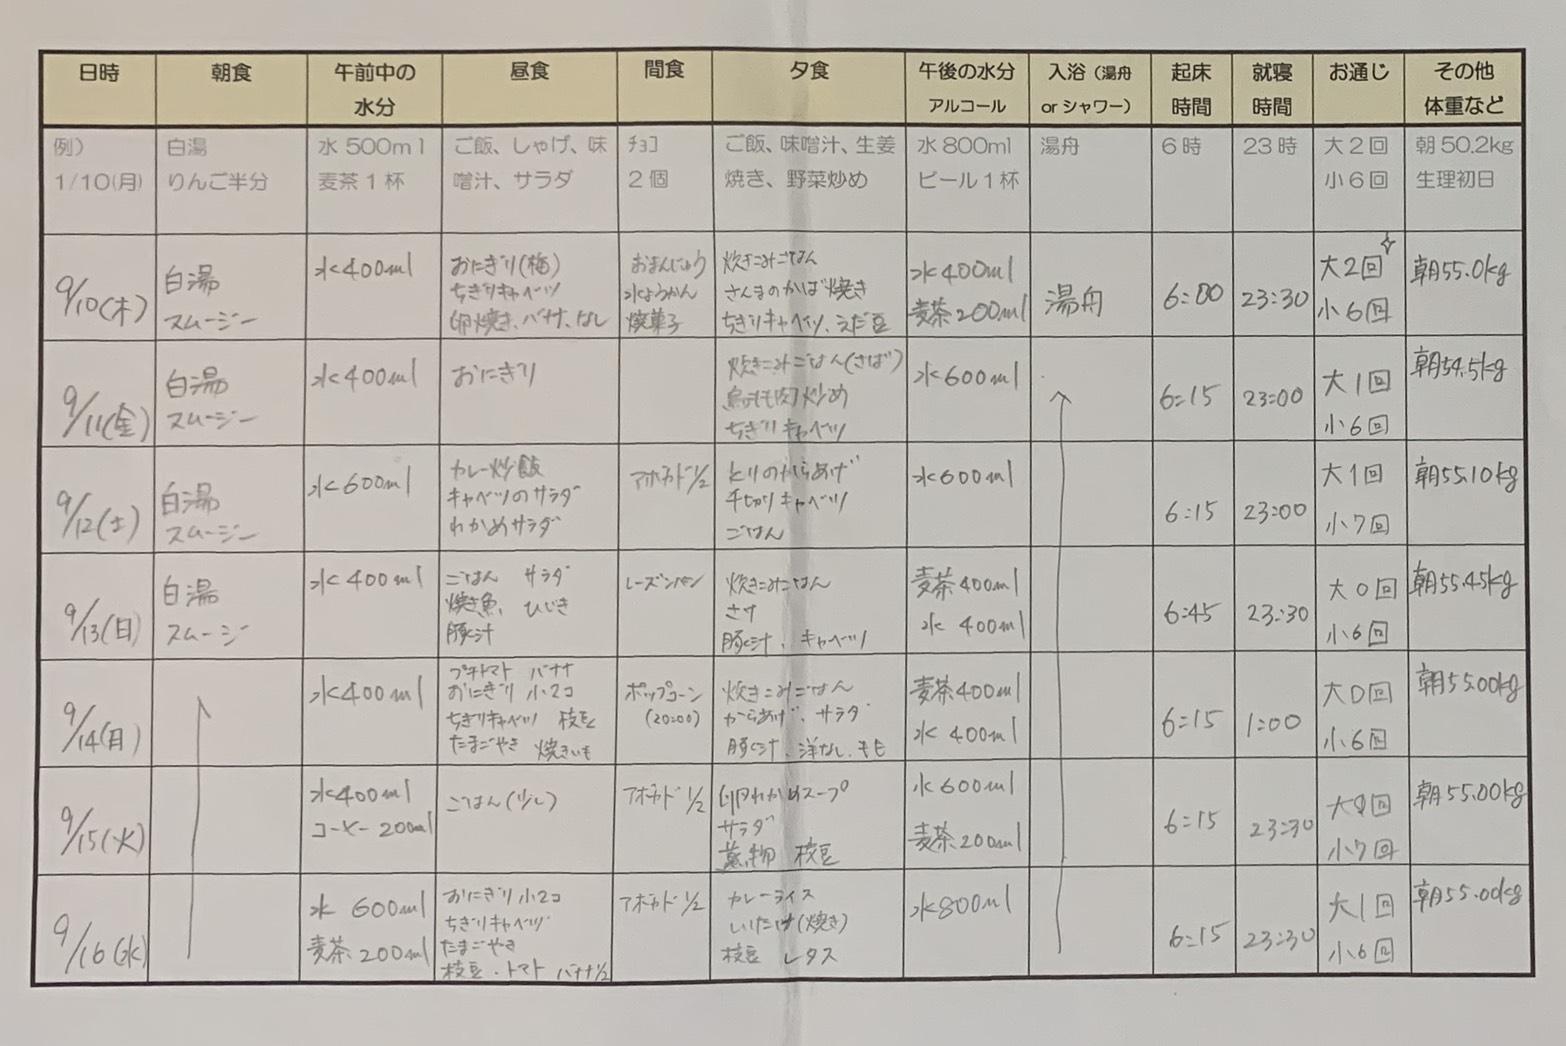 日時 朝食 午前中の水分 昼食 間食 夕食 午後の水分 アルコール 入浴(湯舟orシャワー) 起床時間 就寝時間 お通じ その他体重など
例)
1/10(月)
白湯
りんご半分
水500ml
麦茶1杯
ご飯、しゃげ、味
噌汁、サラダ
チョコ
2個
ご飯、味噌汁、生姜
焼き、野菜炒め
水800ml
ビール1杯
湯舟
6時
23時
大2回
小6回
朝50.2kg
生理初日
9/10(木)
白湯
スムージー
水400ml
おにぎり(梅)
ちぎりキャベツ
卵焼き、バナナ、なし
おまんじゅう
水ようかん
焼菓子
炊きこみごはん
さんまのかば焼き
ちぎりキャベツ、えだ豆
水400ml
麦茶200ml
湯舟
6:00
23:30
大2回
小6回
朝55.0kg
9/11(金)
白湯
スムージー
水400ml
おにぎり
炊きこみごはん(さば)
鳥もも肉炒め
ちぎりキャベツ
水600ml
6:15
23:00
大1回
小6回
朝54.5kg
9/12(土)
白湯
スムージー
水600ml
カレー炒飯
キャベツのサラダ
わかめサラダ
アボカド1/2
とりのからあげ
千切りキャベツ
ごはん
水600ml
6:15
23:00
大1回
小7回
朝55.10kg
9/13(日)
白湯
スムージ
水400ml
ごはん サラダ
焼き魚、ひじき
豚汁
レーズンパン
炊きこみごはん
さけ
豚汁、キャベツ
麦茶400ml
水 400ml
6:45
23:30
大0回
小6回
朝55.45kg
9/14(月)
水400ml
プチトマト バナナ
おにぎり 小2コ
ちぎりキャベツ 枝豆
たまごやき 焼きいも
ポップコーン
(20:00)
炊きこみごはん
からあげ、サラダ
豚汁、洋なし、もも
麦茶400ml
水 400ml
6:15
1:00
大0回
小6回
朝55.00kg
9/15(火)
水400ml
コーヒー 200ml
ごはん(少し)
アボカド1/2
卵わかめスープ
サラダ
枝豆
水600ml
麦茶200ml
6:15
23:30
小7回
朝55.00kg
9/16(水)
水 600ml
麦茶 200ml
おにぎり 小2コ
ちぎりキャベツ
たまごやき
枝豆・トマト バナナ1/2
アボカド1/2
カレーライス
しいたけ(焼き)
枝豆 レタス
水800ml
6:15
23:30
大1回
小6回
朝55.00kg